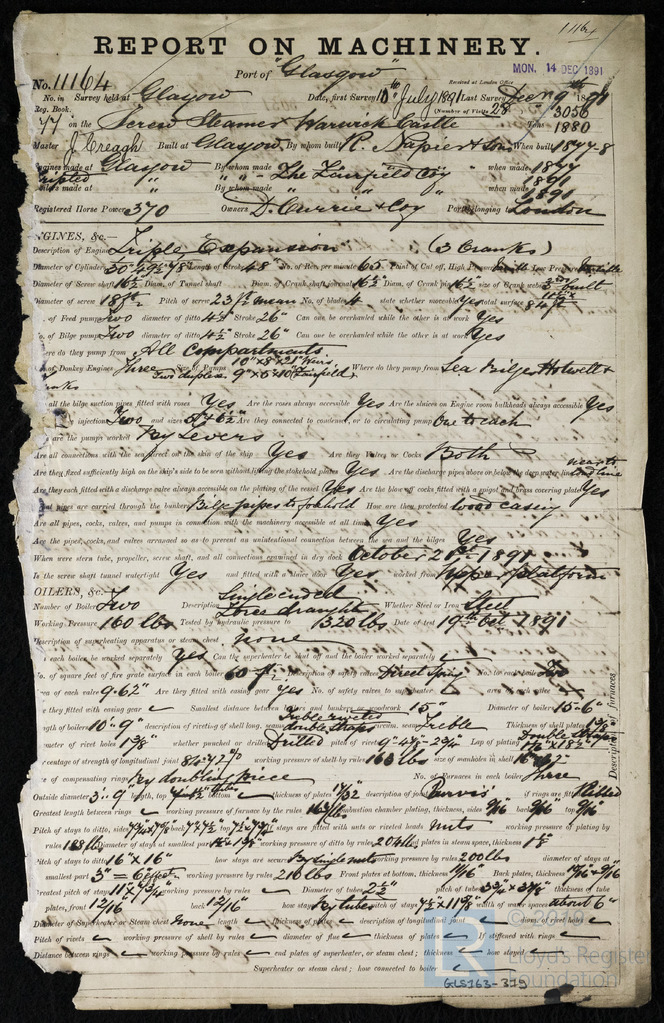 1164
REPORT ON MACHINERY.
Port of "Glasgow"
Received at London Office
MON. 14 DEC 1891
No. 11164
No. in Survey held at Glasgow Date, first Survey 10th July 1891 Last Survey Dec 9th 1891
Reg. Book. (Number of Visits 28 3056
on the Screw Steamer Warwick Castle Tons 1880
Master J. Creagh Built at Glasgow By whom built R. Napier & Son When built 1877-8
Engines made at Glasgow By whom made " when made 1877
" " The Fairfield Coy " 1891
made at " By whom made " when made 1891
Registered Horse Power 370 Owners D. Currie & Coy Port belonging London
ENGINES, &c.—
Description of Engines Triple Expansion (3 Cranks)
Diameter of Cylinders Length of Stroke 48" No. of Rev. per minute 65 Point of Cut off, High Pressure Low Pressure
Diameter of Screw shaft 16½ Diam. of Tunnel shaft Diam. of Crank shaft journals 16½ Diam. of Crank pin 16½ size of Crank webs
Diameter of screw 18 ft Pitch of screw 23 ft mean No. of blades 4 state whether moveable Yes total surface 84 ft
No. of Feed pumps Two diameter of ditto Stroke 26" Can one be overhauled while the other is at work Yes
No. of Bilge pumps Two diameter of ditto 4½ Stroke 26" Can one be overhauled while the other is at work Yes
Where do they pump from All Compartments
No. of Donkey Engines Three Size of Pumps Where do they pump from Sea Bilges Hotwell &
Two duplex (Fairfield)
Tanks
all the bilge suction pipes fitted with roses Yes Are the roses always accessible Yes Are the sluices on Engine room bulkheads always accessible Yes
injections Two and sizes Are they connected to condenser, or to circulating pump One to each
are the pumps worked By Levers
Are all connections with the sea direct on the skin of the ship Yes Are they Valves or Cocks Both
Are they fixed sufficiently high on the ship's side to be seen without lifting the stokehold plates Yes Are the discharge pipes above or below the deep water line near to load line
Are they each fitted with a discharge valve always accessible on the plating of the vessel Yes Are the blow off cocks fitted with a spigot and brass covering plate Yes
What pipes are carried through the bunkers Bilge pipes to forehold How are they protected Wood casing
Are all pipes, cocks, valves, and pumps in connection with the machinery accessible at all times Yes
Are the pipes, cocks, and valves arranged so as to prevent an unintentional connection between the sea and the bilges Yes
When were stern tube, propeller, screw shaft, and all connections examined in dry dock October 21st 1891
Is the screw shaft tunnel watertight Yes and fitted with a sluice door Yes worked from Upper platform
BOILERS, &c.—
Number of Boilers Two Description Single ended Whether Steel or Iron Steel
Working Pressure 160 lbs Tested by hydraulic pressure to 320 lbs Date of test 19th Oct 1891
Description of superheating apparatus or steam chest None
each boiler be worked separately Yes Can the superheater be shut off and the boiler worked separately
No. of square feet of fire grate surface in each boiler 60 Description of safety valves Direct Spring No. to each boiler Two
Area of each valve 9.62" Are they fitted with easing gear Yes No. of safety valves to superheater area of each valve
they fitted with easing gear Smallest distance between boilers and bunkers or woodwork 15" Diameter of boilers 15-6"
Length of boilers 10-9" description of riveting of shell long. seams Treble riveted double straps circum. seams Treble Thickness of shell plates
Diameter of rivet holes 1 3/8" whether punched or drilled Drilled pitch of rivets Lap of plating Double Straps
percentage of strength of longitudinal joint working pressure of shell by rules 163 lbs size of manholes in shell
size of compensating rings By doubling piece No. of Furnaces in each boiler Three
Outside diameter 3'-9" length, top bottom thickness of plates description of joint Purves' if rings are fitted Ribbed
Greatest length between rings working pressure of furnace by the rules 163 lbs combustion chamber plating, thickness, sides 9/16 back 9/16 top 9/16
Pitch of stays to ditto, sides back top If stays are fitted with nuts or riveted heads nuts working pressure of plating by
rules 168 lbs Diameter of stays at smallest part working pressure of ditto by rules 204 lbs plates in steam space, thickness
Pitch of stays to ditto 16" x 16" how stays are secured By single nuts working pressure by rules 200 lbs diameter of stays at
smallest part 3" working pressure by rules 210 lbs Front plates at bottom, thickness Back plates, thickness
Greatest pitch of stays working pressure by rules Diameter of tubes 2½ pitch of tubes thickness of tube
plates, front 12/16" back 12/16" how stayed By tubes pitch of stays width of water spaces about 6"
Diameter of Superheater or Steam chest None length thickness of plates description of longitudinal joint diameter of rivet holes
Pitch of rivets working pressure of shell by rules diameter of flue thickness of plates If stiffened with rings
Distance between rings working pressure by rules end plates of superheater, or steam chest; thickness how stayed
Superheater or steam chest; how connected to boiler
Description of furnaces
© 2019
Lloyd's Register
Foundation
GLS163-319